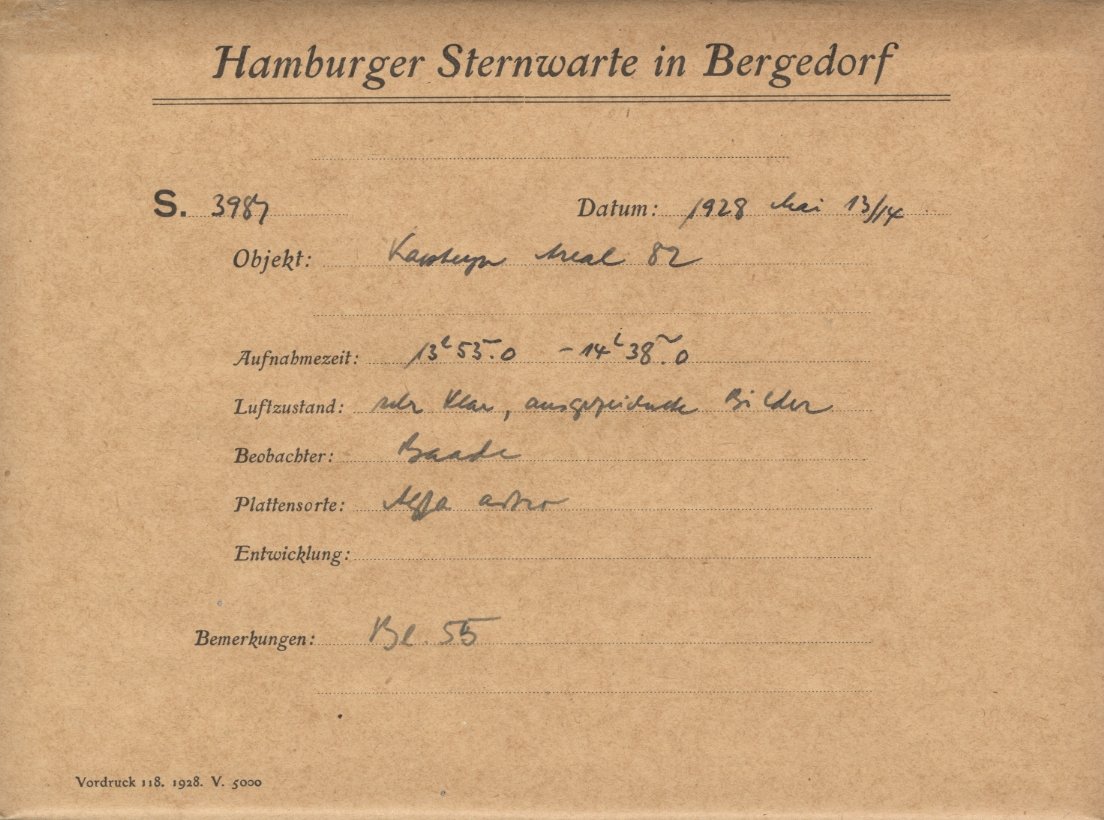 Hamburger Sternwarte in Bergedorf
S. 3987 Datum: 1928 Mai 13/14
Objekt: Kapteyn Areal 82
Aufnahmezeit: 13ʰ53ᵐ.0 - 14ʰ38ᵐ.0
Luftzustand: sehr klar, ausgezeichnete Bilder
Beobachter: Baade
Plattensorte: Agfa astro
Entwicklung:
Bemerkungen: Bl. 55
Vordruck 118. 1928. V. 5000